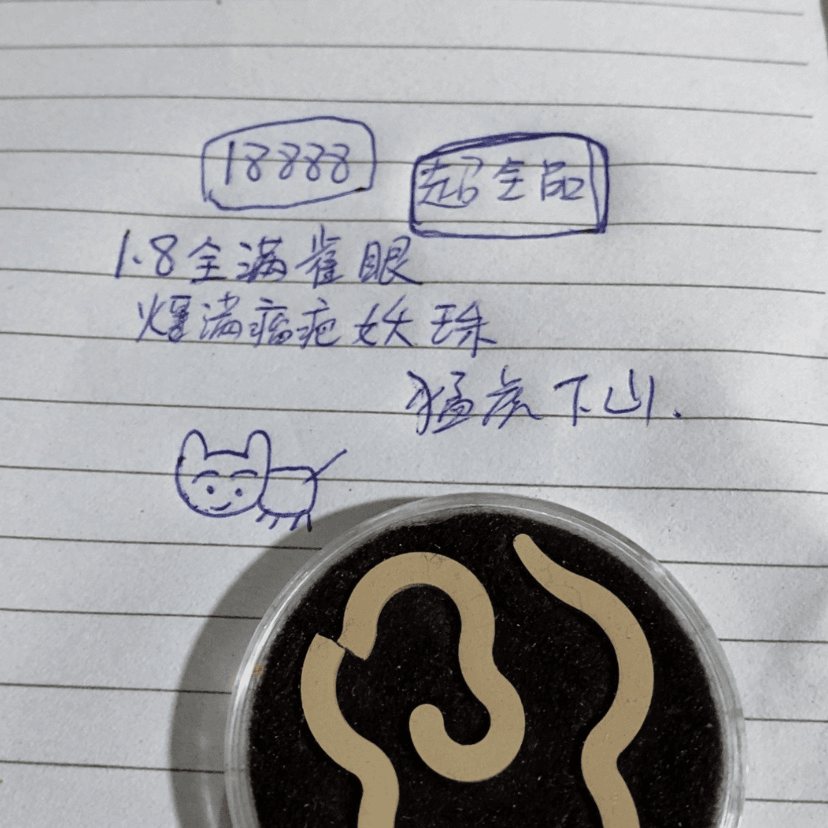 18888 超全品
1.8全满雀眼
爆满瘤疤妖珠
猛虎下山.